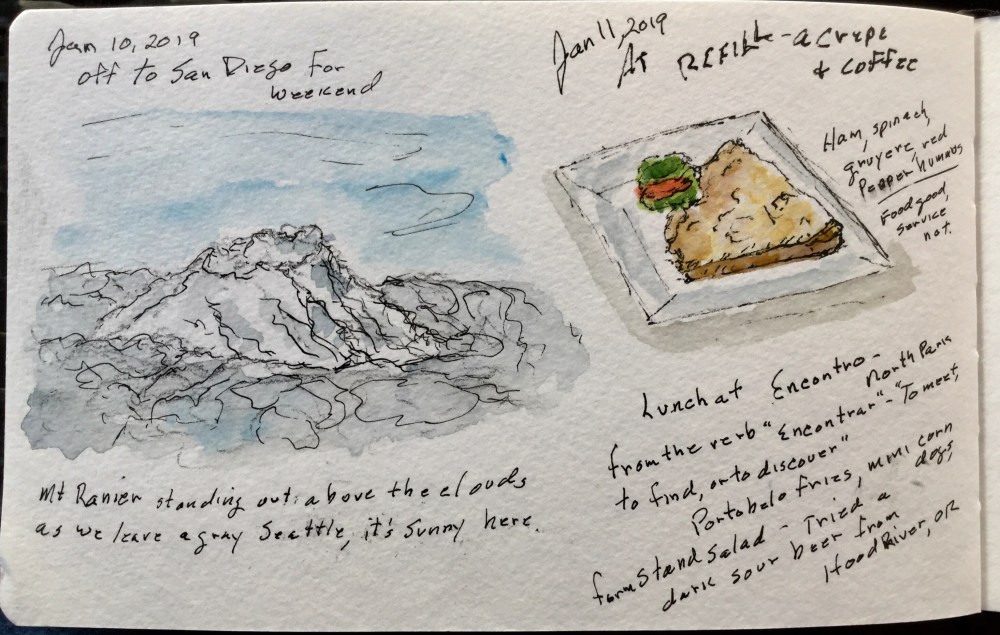 Jan 10, 2019
off to San Diego for
weekend
Mt Ranier standing out above the clouds
as we leave a gray Seattle, it's sunny here.
Jan 11, 2019
At Refill - a crepe
& coffee
Ham, spinach,
gruyere, red
pepper hummus
Food good,
service
not.
Lunch at Encontro -
North Park
from the verb "Encontrar" - "To meet,
to find, or to discover"
Portobelo fries, mini corn
dogs,
farm stand salad - Tried a
dark sour beer from
Hood River, OR